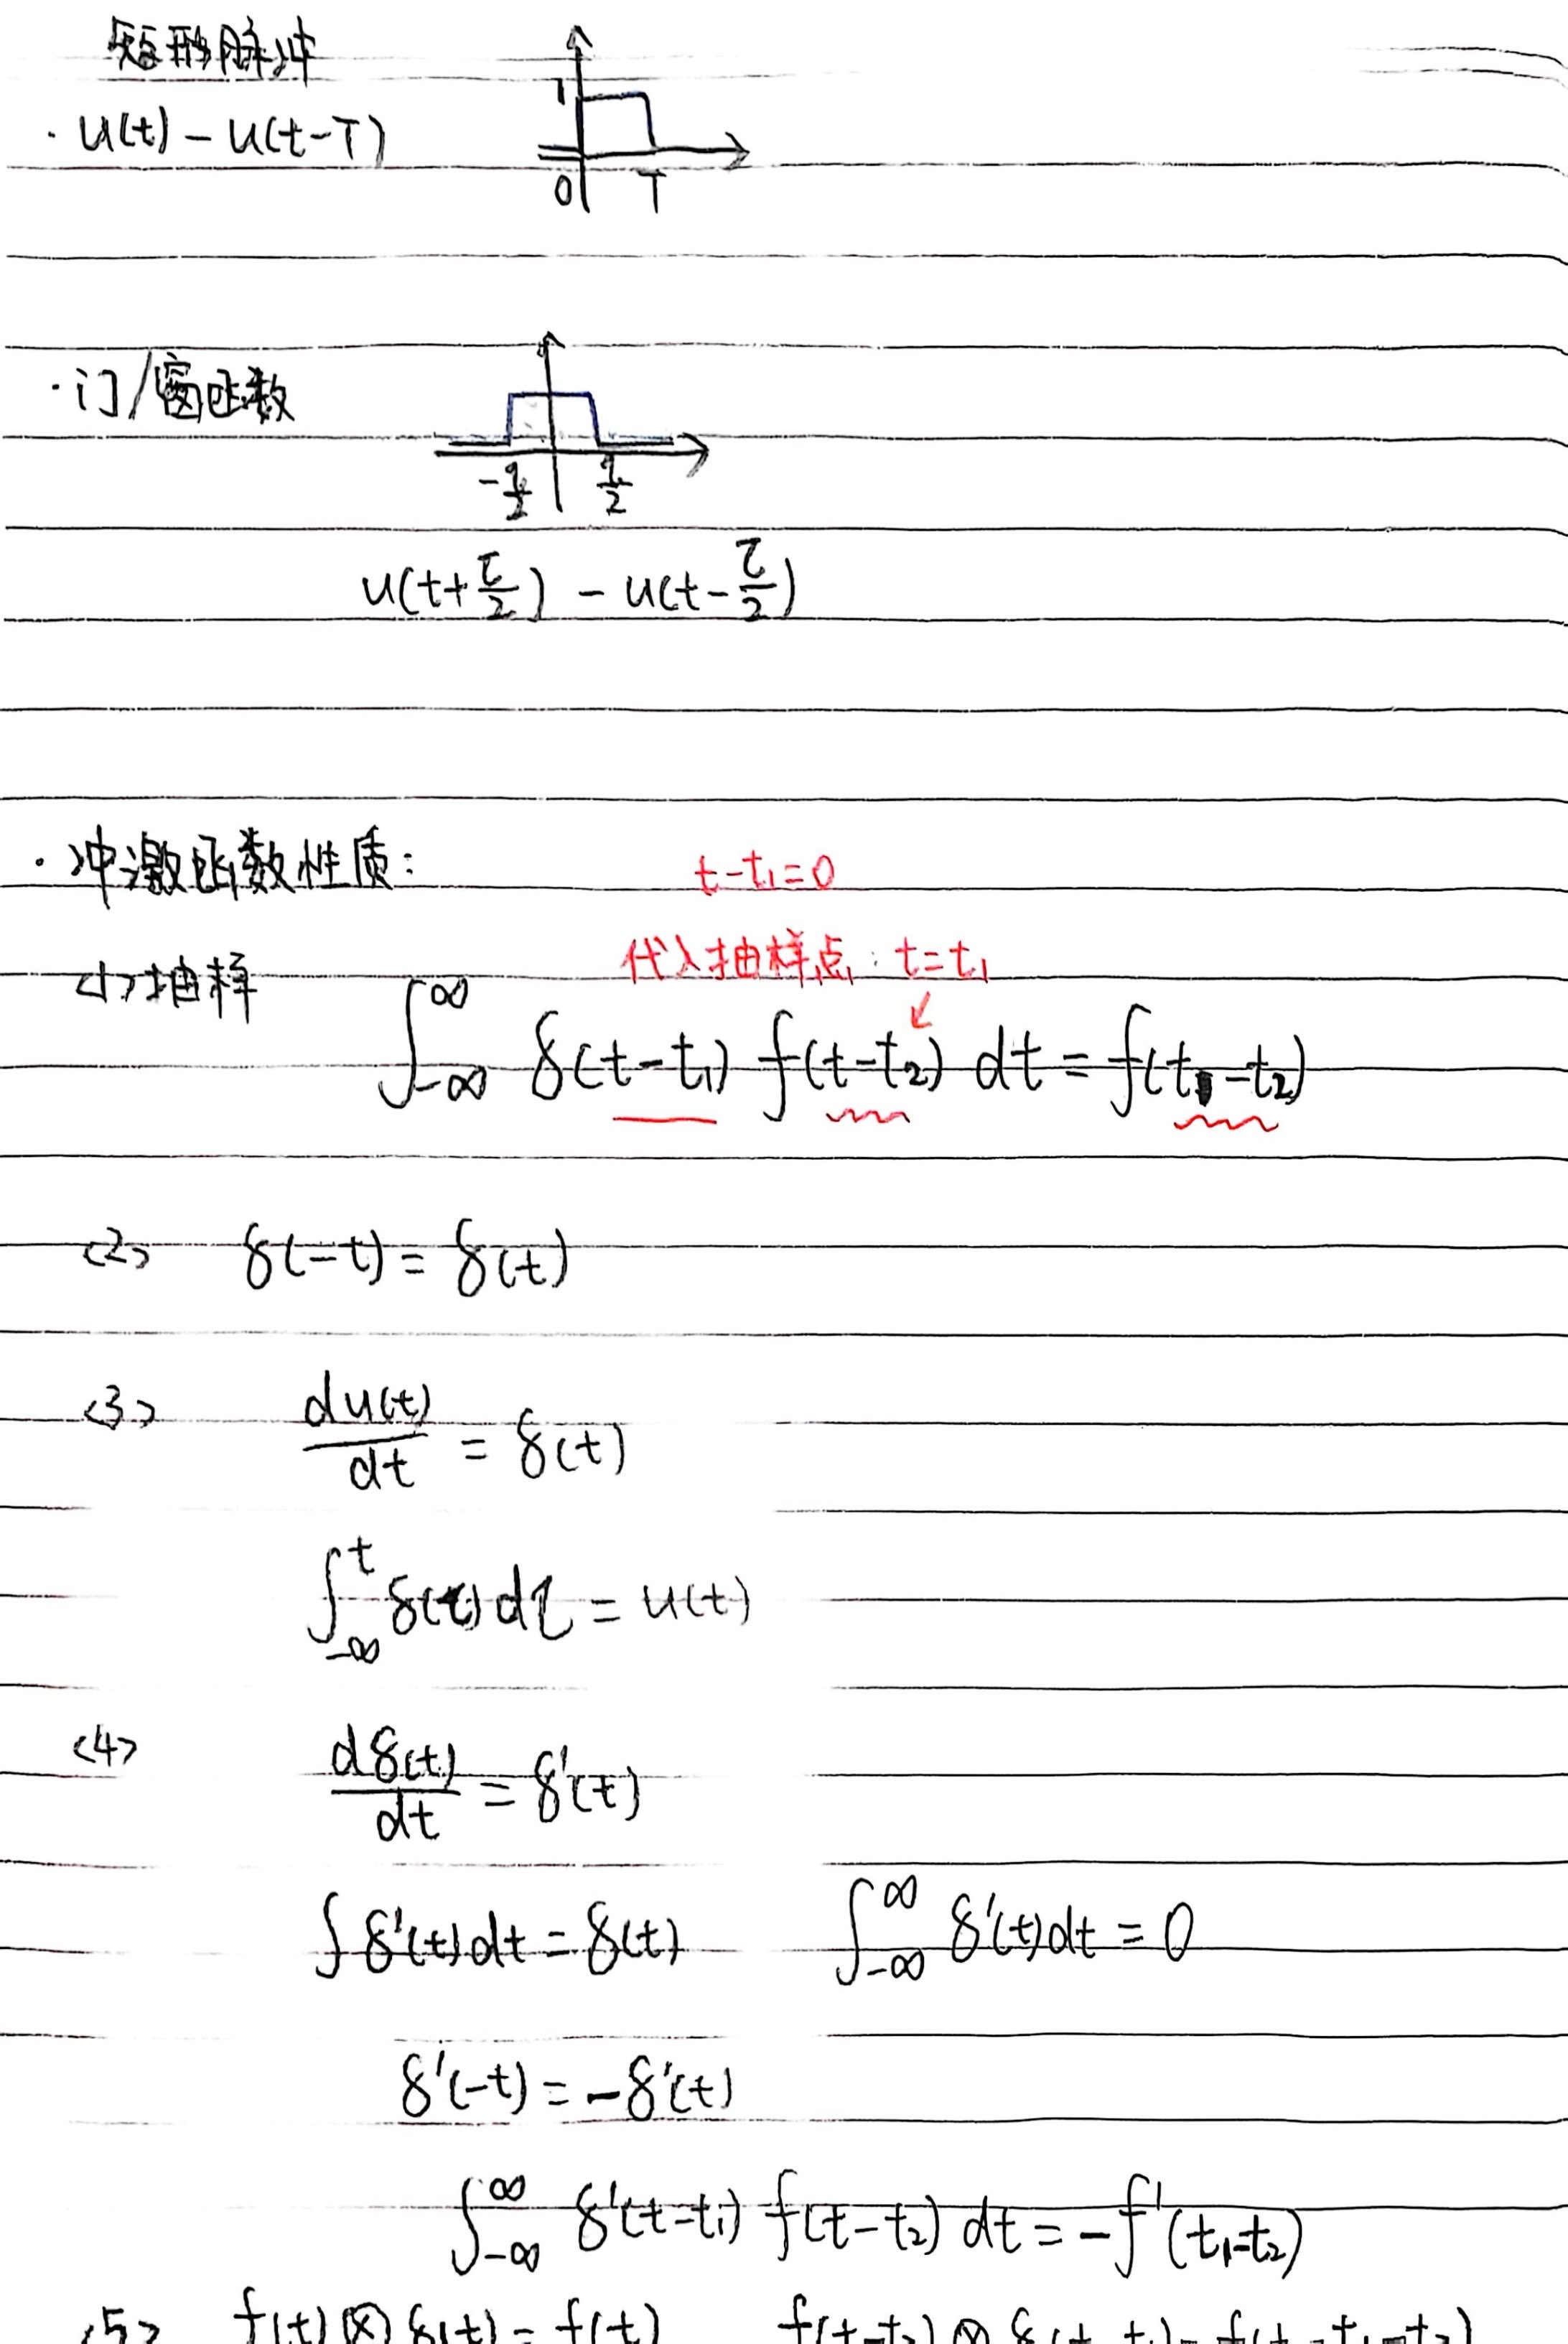 矩形脉冲
· u(t) - u(t-T)
1
0 T
· 门/窗函数
-τ/2 τ/2
u(t+τ/2) - u(t-τ/2)
· 冲激函数性质:
t-t₁=0
代入抽样点: t=t₁
<1> 抽样
∫_{-∞}^{∞} δ(t-t₁) f(t-t₂) dt = f(t₁-t₂)
<2> δ(-t) = δ(t)
<3> du(t)/dt = δ(t)
∫_{-∞}^{t} δ(τ)dτ = u(t)
<4> dδ(t)/dt = δ'(t)
∫ δ'(t)dt = δ(t) ∫_{-∞}^{∞} δ'(t)dt = 0
δ'(-t) = -δ'(t)
∫_{-∞}^{∞} δ'(t-t₁) f(t-t₂) dt = -f'(t₁-t₂)
<5> f(t) ⊗ δ(t) = f(t) f(t-t₂) ⊗ δ(t-t₁) = f(t-t₁-t₂)